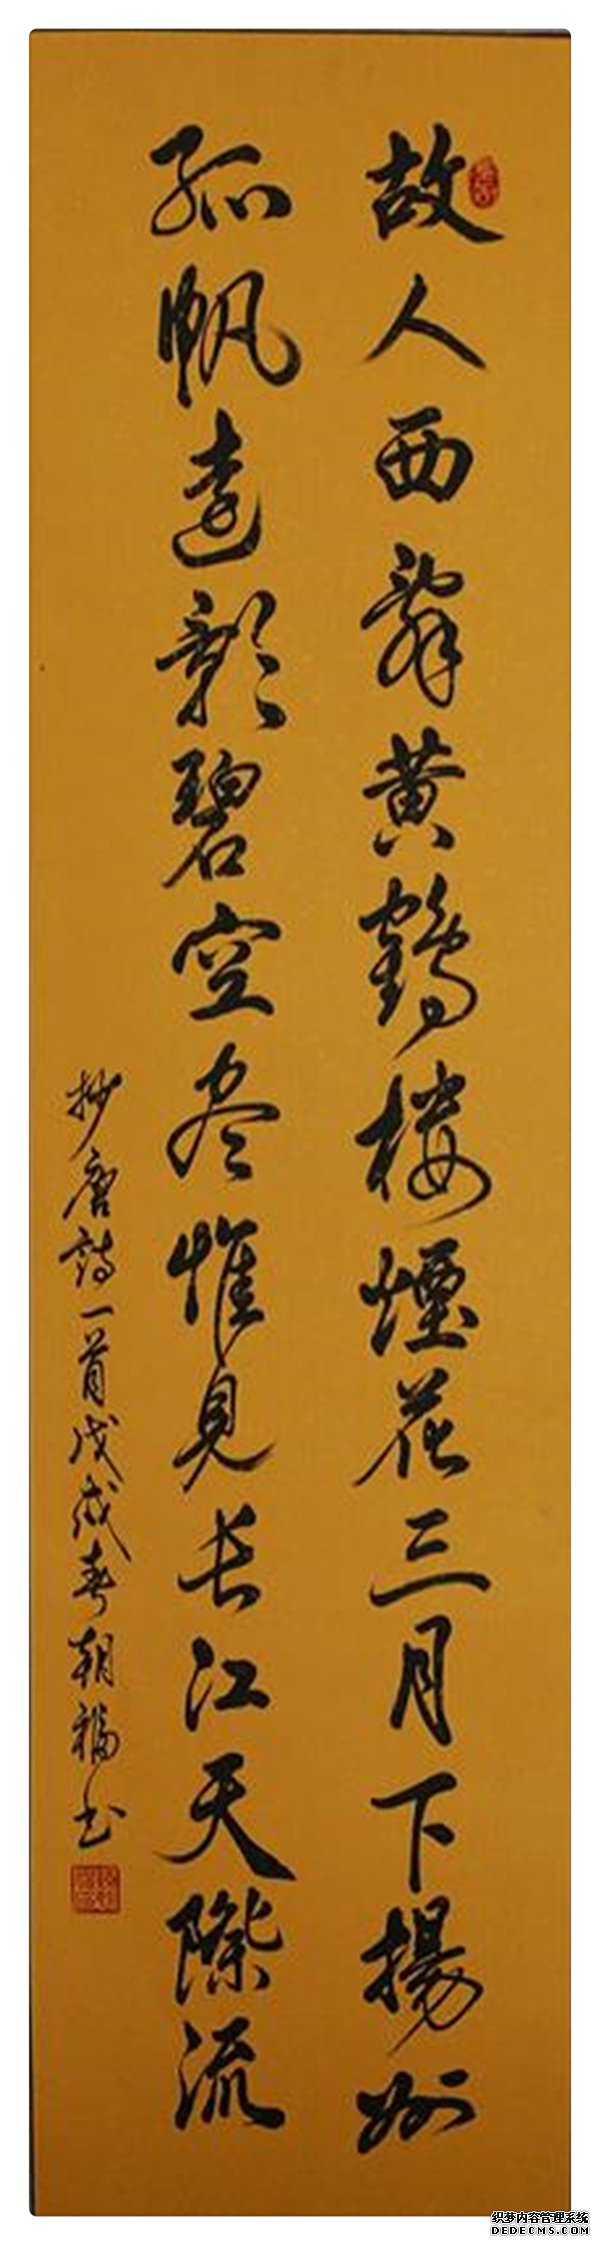 故人西辞黄鹤楼煙花三月下揚州
孤帆遠影碧空尽惟見长江天際流
抄唐詩一首戊戌春朝福书
织梦内容管理系统
DEDECMS.COM